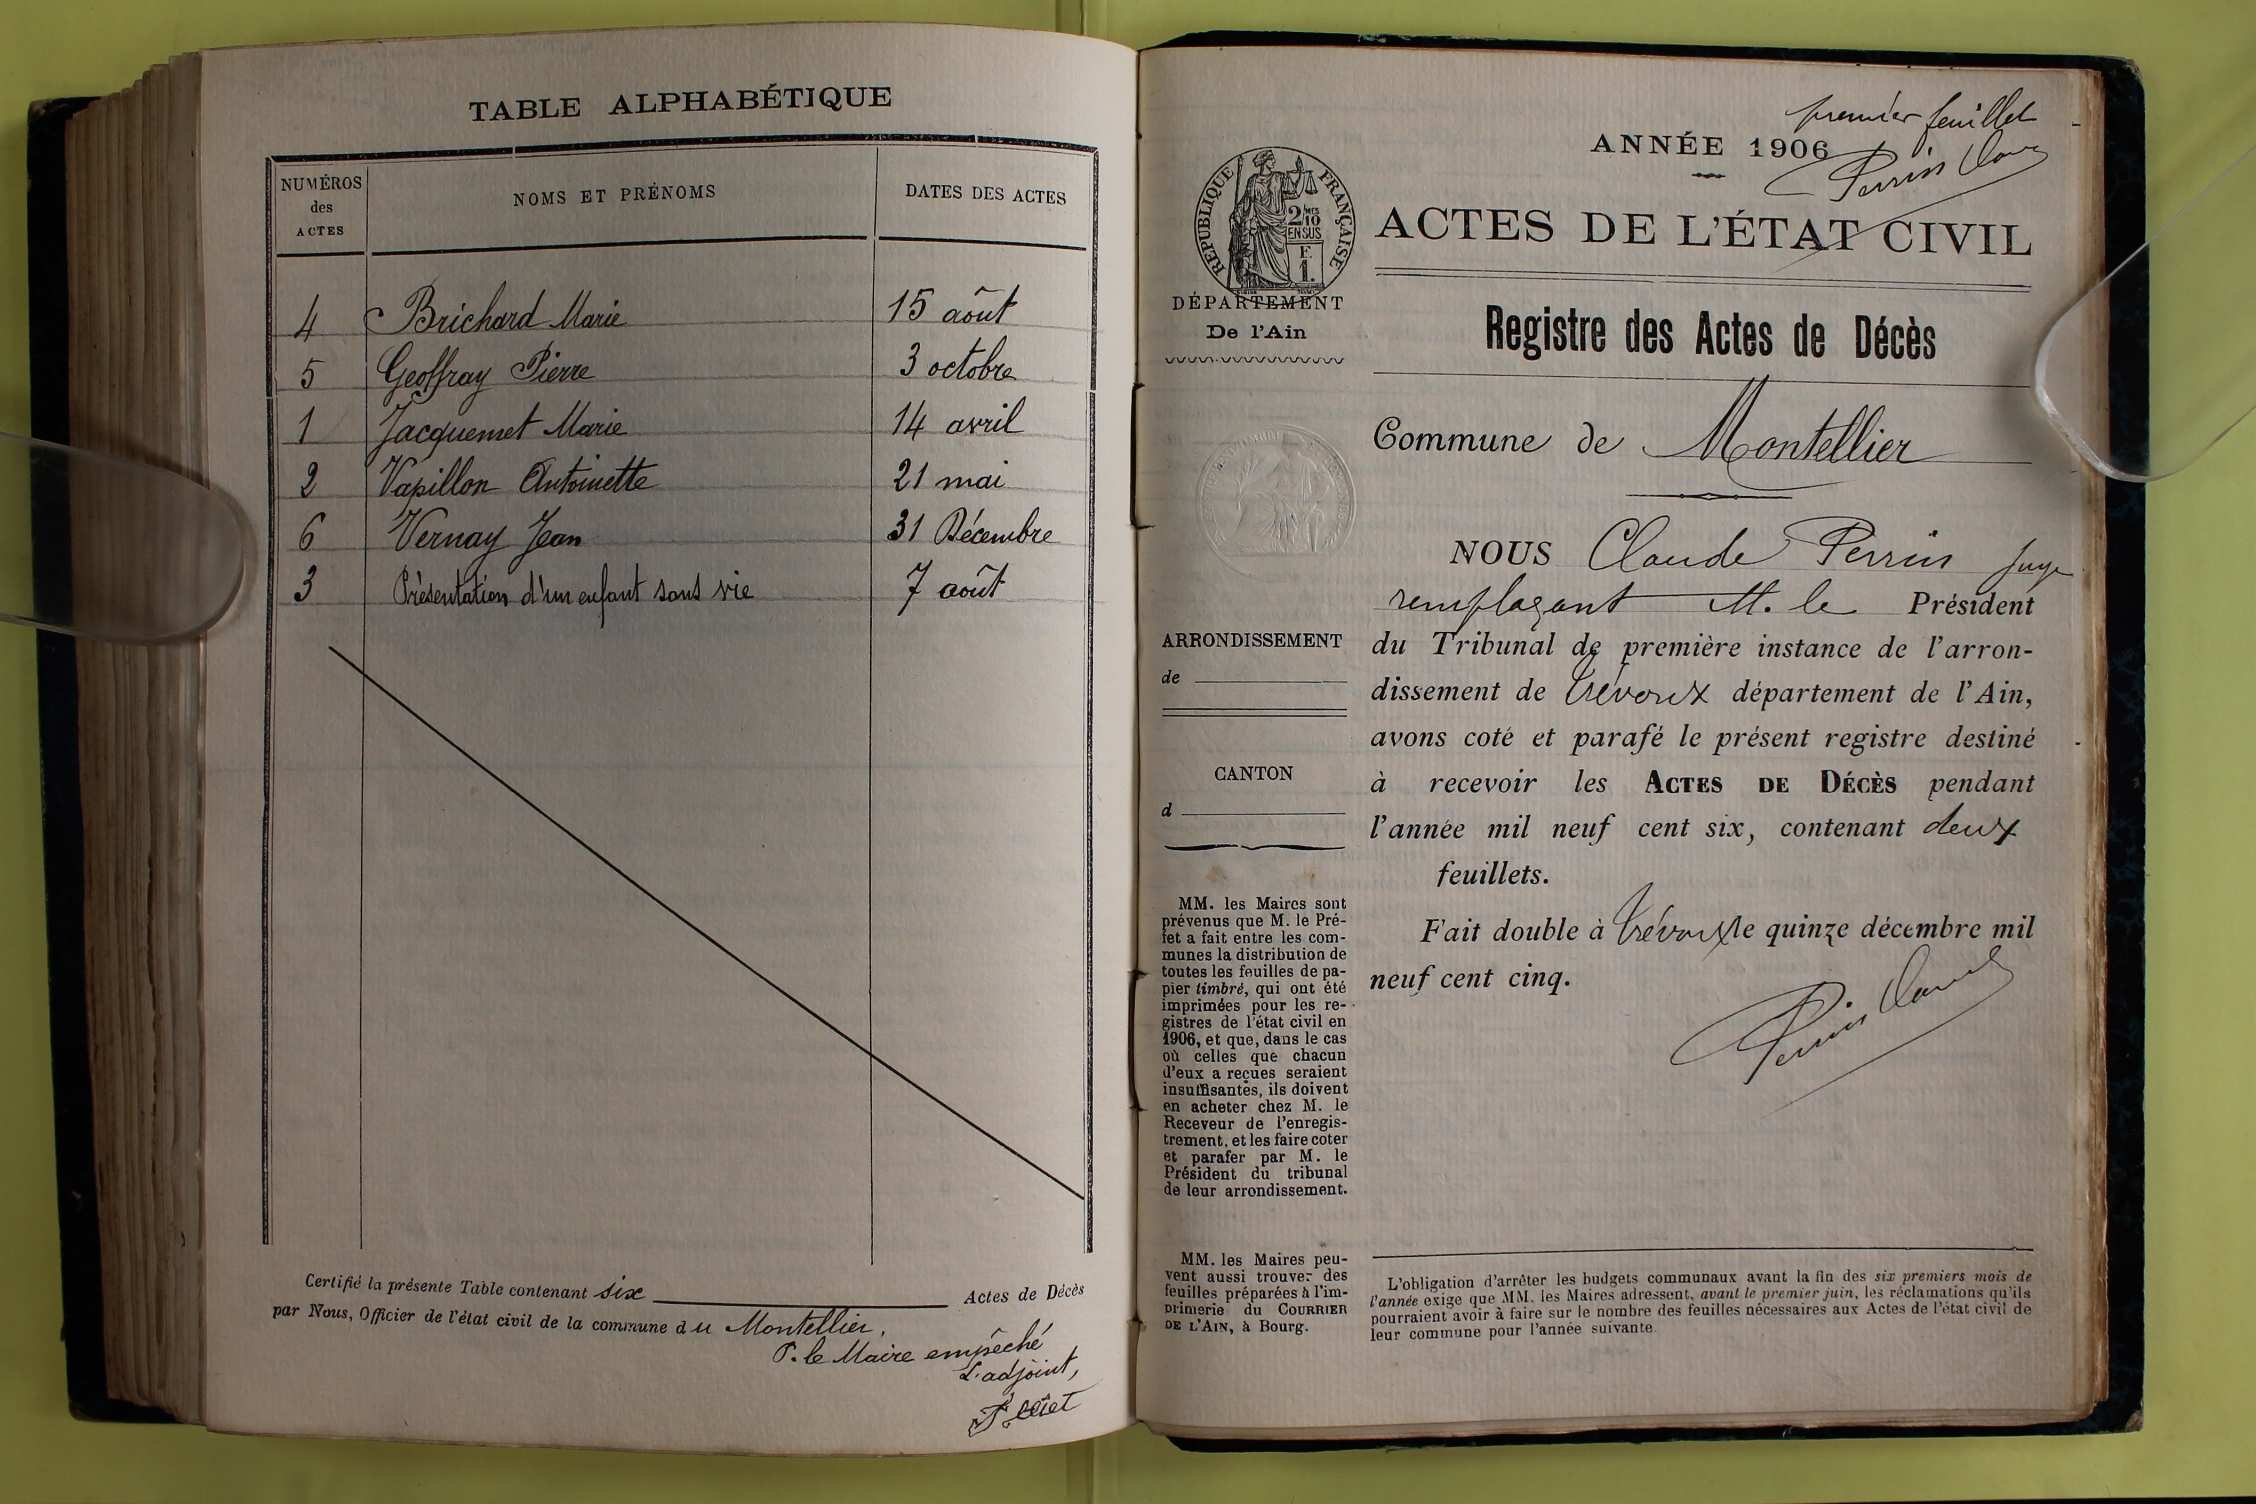 TABLE ALPHABÉTIQUE
NUMÉROS des ACTES
NOMS ET PRÉNOMS
DATES DES ACTES
4 Brichard Marie 15 aôut
5 Geoffray Pierre 3 octobre
1 Jacquemet Marie 14 avril
2 Vapillon Antoinette 21 mai
6 Vernay Jean 31 Décembre
3 Présentation d'un enfant sans vie 7 aôut
Certifié la présente Table contenant six Actes de Décès
par Nous, Officier de l'état civil de la commune du Montellier,
P. le Maire empêché
L'adjoint,
premier feuillet
ANNÉE 1906
Perrin
RÉPUBLIQUE FRANÇAISE
2/10 EN SUS
F. 1.
ACTES DE L'ÉTAT CIVIL
DÉPARTEMENT
De l'Ain
Registre des Actes de Décès
Commune de Montellier
NOUS Claude Perrin Juge
remplaçant M. le Président
du Tribunal de première instance de l'arron-
dissement de Trévoux département de l'Ain,
avons coté et parafé le présent registre destiné
à recevoir les ACTES DE DÉCÈS pendant
l'année mil neuf cent six, contenant deux
feuillets.
Fait double à Trévoux le quinze décembre mil
neuf cent cinq.
Perrin
ARRONDISSEMENT
de
CANTON
d
MM. les Maires sont
prévenus que M. le Pré-
fet a fait entre les com-
munes la distribution de
toutes les feuilles de pa-
pier timbré, qui ont été
imprimées pour les re-
gistres de l'état civil en
1906, et que, dans le cas
où celles que chacun
d'eux a reçues seraient
insuffisantes, ils doivent
en acheter chez M. le
Receveur de l'enregis-
trement, et les faire coter
et parafer par M. le
Président du tribunal
de leur arrondissement.
MM. les Maires peu-
vent aussi trouver des
feuilles préparées à l'im-
primerie du COURRIER
DE L'AIN, à Bourg.
L'obligation d'arrêter les budgets communaux avant la fin des six premiers mois de
l'année exige que MM. les Maires adressent, avant le premier juin, les réclamations qu'ils
pourraient avoir à faire sur le nombre des feuilles nécessaires aux Actes de l'état civil de
leur commune pour l'année suivante.